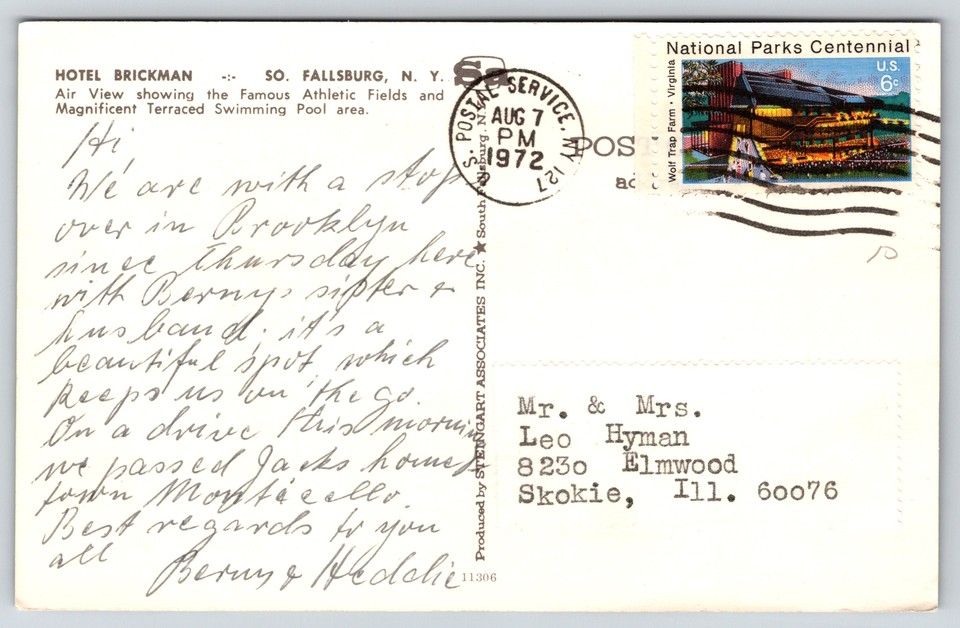 HOTEL BRICKMAN -:- SO. FALLSBURG, N. Y.
Air View showing the Famous Athletic Fields and
Magnificent Terraced Swimming Pool area.
Hi
We are with a stop
over in Brooklyn
since Thursday here
with Bernys sister &
husband. it's a
beautiful spot, which
keeps us on the go.
On a drive this morning
we passed Jacks home
town Monticello.
Best regards to you
all
Berny & Heddie
11306
Produced by STEINGART ASSOCIATES INC. ★ South Fallsburg, N.Y.
Sa
U.S. POSTAL SERVICE, NY 127
AUG 7
PM
1972
POST
ad
National Parks Centennial
U.S.
6c
Wolf Trap Farm · Virginia
10
Mr. & Mrs.
Leo Hyman
8230 Elmwood
Skokie, Ill. 60076